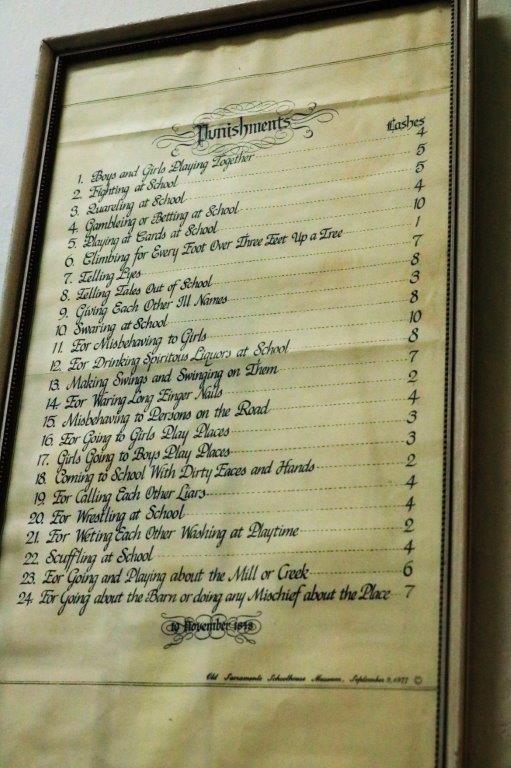 Punishments
Lashes
1. Boys and Girls Playing Together 4
2. Fighting at School 5
3. Quareling at School 5
4. Gambleing or Betting at School 4
5. Playing at Cards at School 10
6. Climbing for Every Foot Over Three Feet Up a Tree 1
7. Telling Lyes 7
8. Telling Tales Out of School 8
9. Giving Each Other Ill Names 3
10. Swaring at School 8
11. For Misbehaving to Girls 10
12. For Drinking Spiritous Liquors at School 8
13. Making Swings and Swinging on Them 7
14. For Waring Long Finger Nails 2
15. Misbehaving to Persons on the Road 4
16. For Going to Girls Play Places 3
17. Girls Going to Boys Play Places 3
18. Coming to School With Dirty Faces and Hands 2
19. For Calling Each Other Liars 4
20. For Wrestling at School 4
21. For Weting Each Other Washing at Playtime 2
22. Scuffling at School 4
23. For Going and Playing about the Mill or Creek 6
24. For Going about the Barn or doing any Mischief about the Place 7
November 1848
Old Sacramento Schoolhouse Museum, September 9, 1977 ©